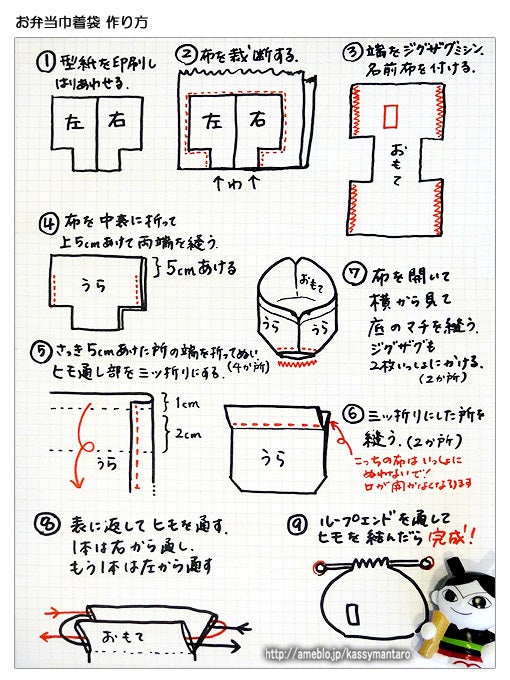 お弁当巾着袋 作り方
① 型紙を印刷し
はりあわせる.
左 右
② 布を裁断する.
左 右
↑わ↑
③ 端をジグザグミシン.
名前布を付ける.
おもて
④ 布を中表に折って
上5cmあけて両端を縫う.
うら
5cmあける
⑤ さっき5cmあけた所の端を折ってぬい
ヒモ通し部を三ッ折りにする.(4か所)
1cm
2cm
うら
おもて
うら うら
⑦ 布を開いて
横から見て
底のマチを縫う.
ジグザグも
2枚いっしょにかける.
(2か所)
⑥ 三ッ折りにした所を
縫う.(2か所)
こっちの布はいっしょに
ぬわないで!
口が開かなくなります
うら
⑧ 表に返してヒモを通す.
1本は右から通し.
もう1本は左から通す
おもて
⑨ ループエンドを通して
ヒモを結んだら完成!
http://ameblo.jp/kassymantaro